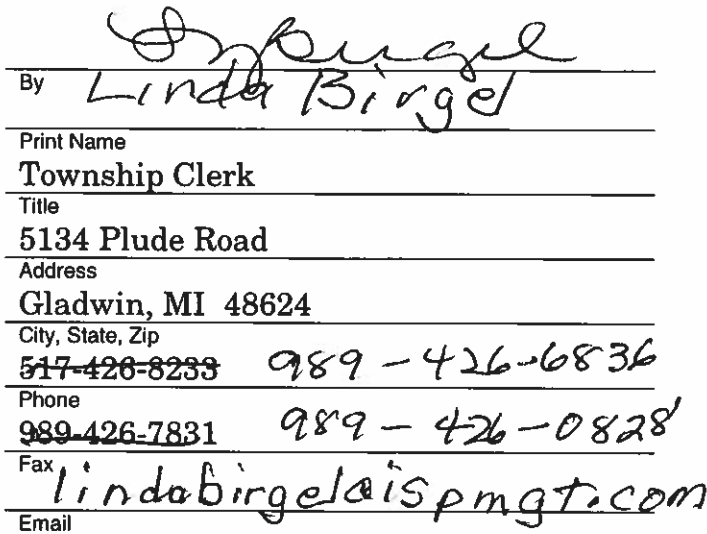 By
Linda Birgel
Print Name
Township Clerk
Title
5134 Plude Road
Address
Gladwin, MI 48624
City, State, Zip
517-426-8233 989-426-6836
Phone
989-426-7831 989-426-0828
Fax
lindabirgel@ispmgt.com
Email